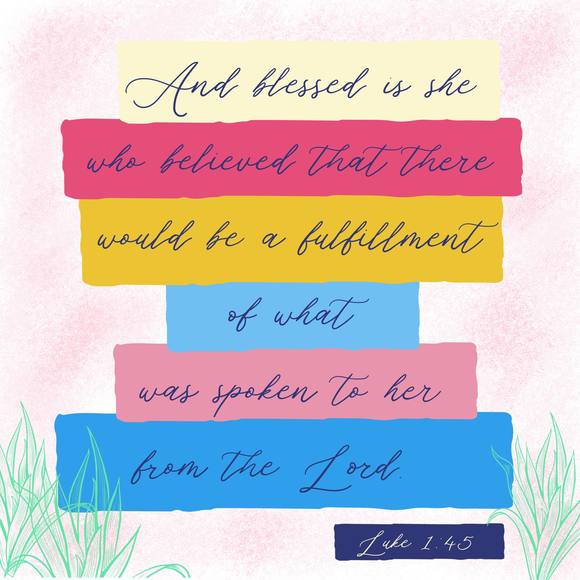 And blessed is she
who believed that there
would be a fulfillment
of what
was spoken to her
from the Lord.
Luke 1:45